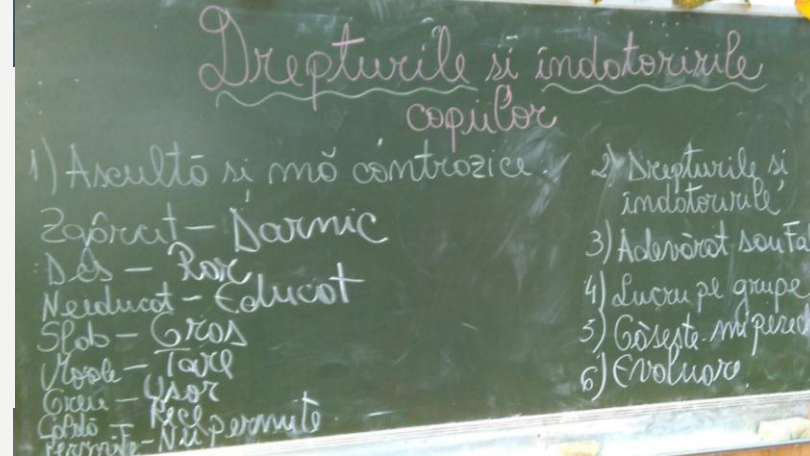 Drepturile si îndatoririle
copiilor
1) Ascultă si mă contrazice.
Zgârcit – Darnic
Des – Rar
Neiducat – Educat
Slab – Gros
Moale – Tare
Greu – Usor
Caldă – Rece
Permite – Nu permite
2) Drepturile si
îndatoririle
3) Adevărat sau Fal
4) Lucru pe grupe
5) Găseste-mi perech
6) Evaluare